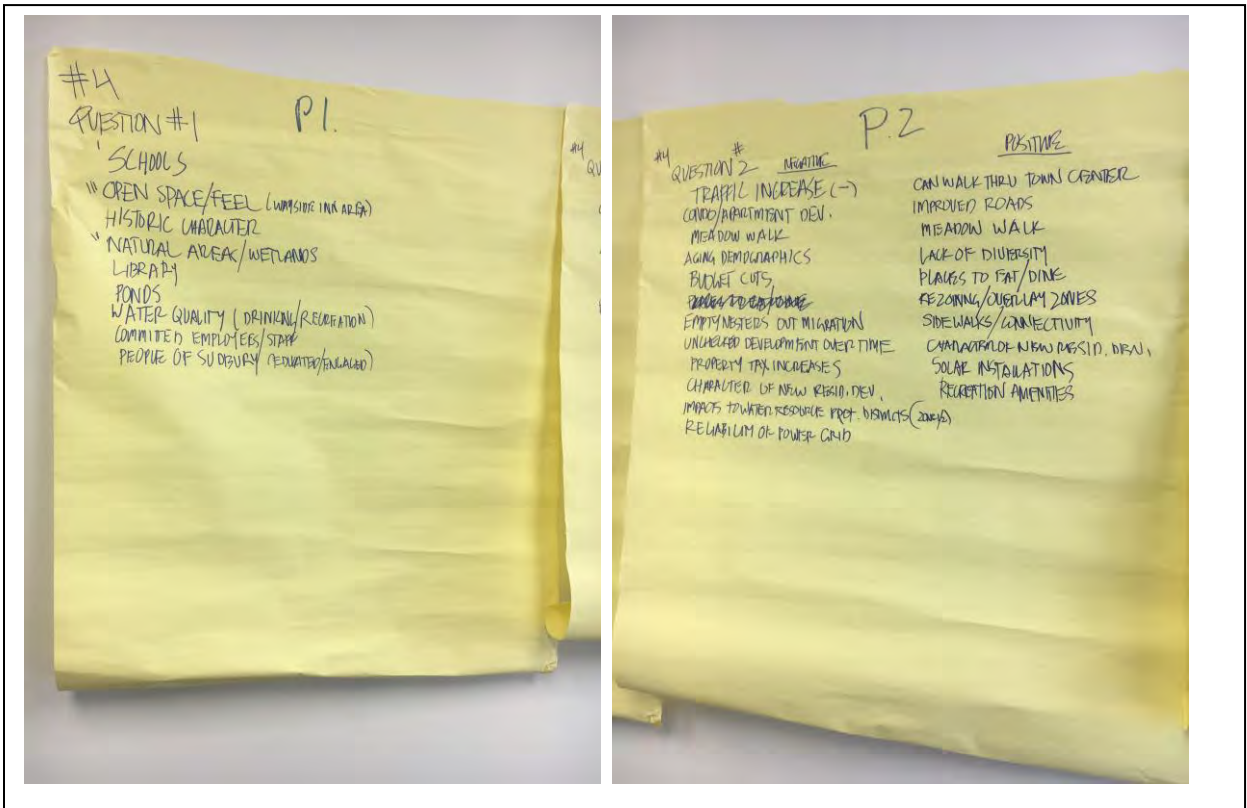 #4
QUESTION #1 P1.
' SCHOOLS
" OPEN SPACE/FEEL (WAYSIDE INN AREA)
HISTORIC CHARACTER
" NATURAL AREAS/WETLANDS
LIBRARY
PONDS
WATER QUALITY (DRINKING/RECREATION)
COMMITTED EMPLOYEES/STAFF
PEOPLE OF SUDBURY (EDUCATED/ENGAGED)
#4
QU
P.2
#4 QUESTION #2 NEGATIVE
TRAFFIC INCREASE (-)
CONDO/APARTMENT DEV.
MEADOW WALK
AGING DEMOGRAPHICS
BUDGET CUTS
PLACES TO EAT/DINE
EMPTY NESTERS OUT MIGRATION
UNCHECKED DEVELOPMENT OVER TIME
PROPERTY TAX INCREASES
CHARACTER OF NEW RESID. DEV.
IMPACTS TO WATER RESOURCE PROT. DISTRICTS
RELIABILITY OF POWER GRID
POSITIVE
CAN WALK THRU TOWN CENTER
IMPROVED ROADS
MEADOW WALK
LACK OF DIVERSITY
PLACES TO EAT/DINE
REZONING/OVERLAY ZONES
SIDEWALKS/CONNECTIVITY
CHARACTER OF NEW RESID.
SOLAR INSTALLATIONS
RECREATION AMENITIES